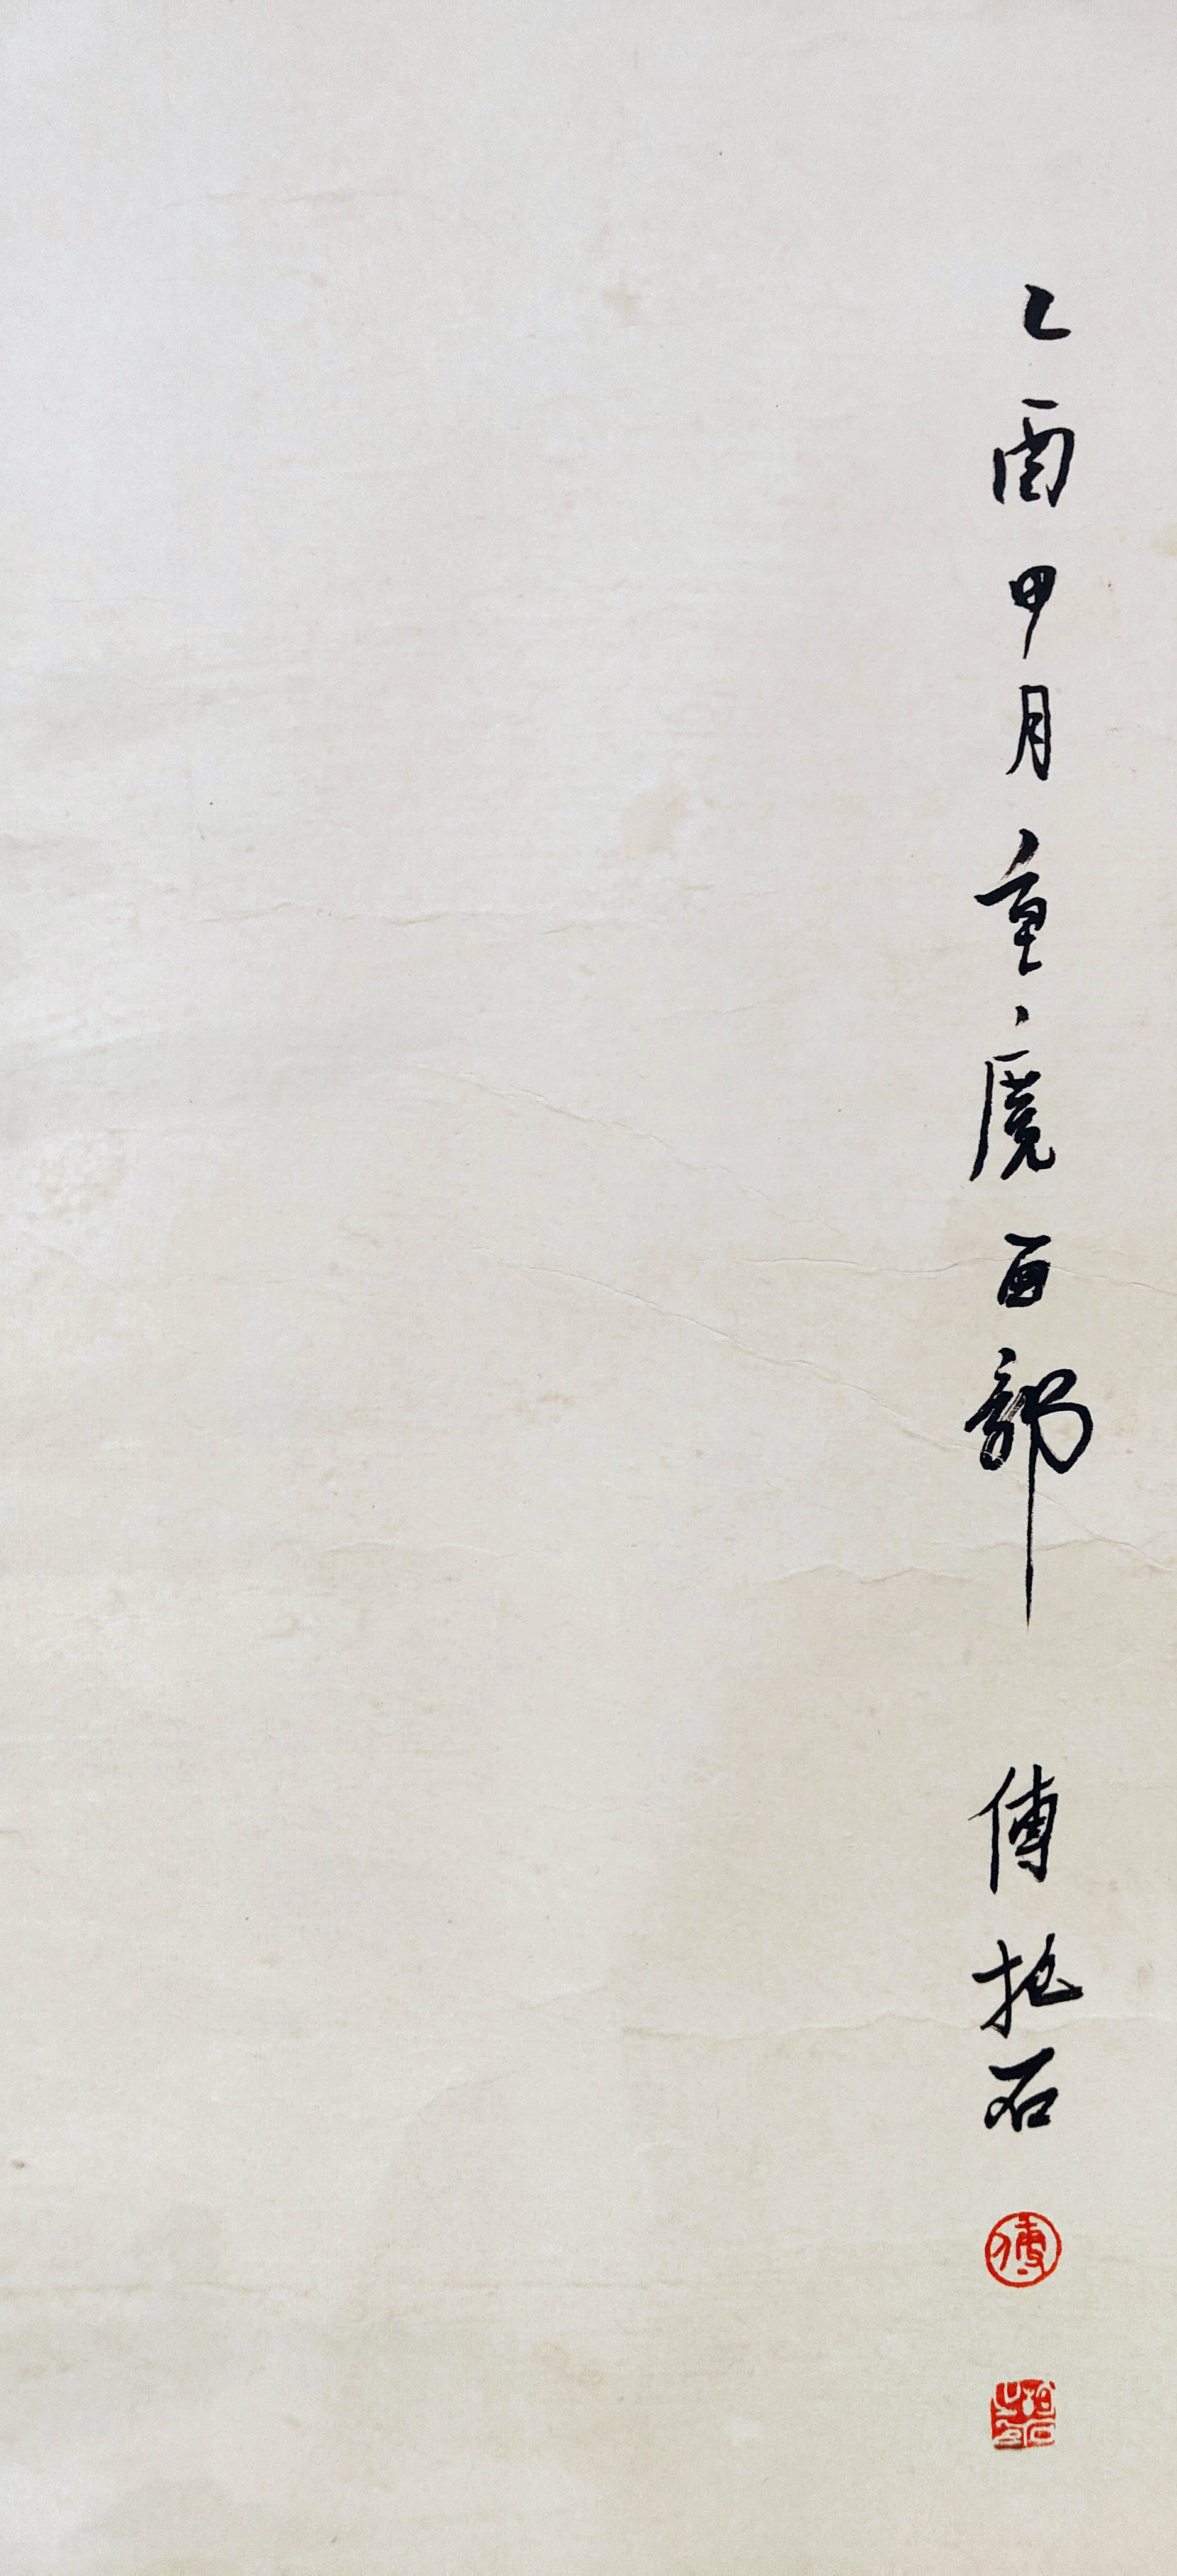 乙酉甲月重慶西部 傅抱石
傅
抱石